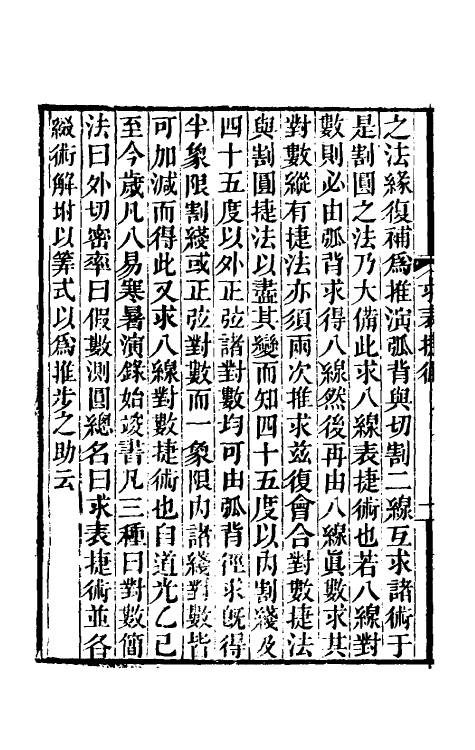 之法緣復補爲推演弧背與切割二線互求諸術于
是割圓之法乃大備此求八線表捷術也若八線對
數則必由弧背求得八線然後再由八線眞數求其
對數縱有捷法亦須兩次推求兹復會合對數捷法
與割圓捷法以盡其變而知四十五度以內割綫及
四十五度以外正弦諸對數均可由弧背徑求旣得
半象限割綫或正弦對數而一象限內諸綫對數皆
可加減而得此又求八線對數捷術也自道光乙巳
至今歲凡八易寒暑演錄始竣書凡三種曰對數簡
法曰外切密率曰假數測圓總名曰求表捷術並各
綴術解坿以筭式以爲推步之助云
求表捷術